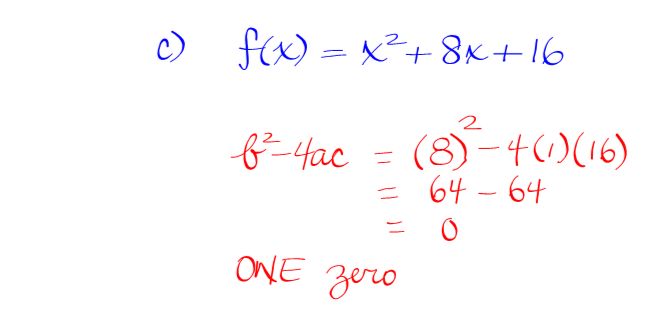 c) f(x) = x² + 8x + 16
b² - 4ac = (8)² - 4(1)(16)
= 64 - 64
= 0
ONE zero